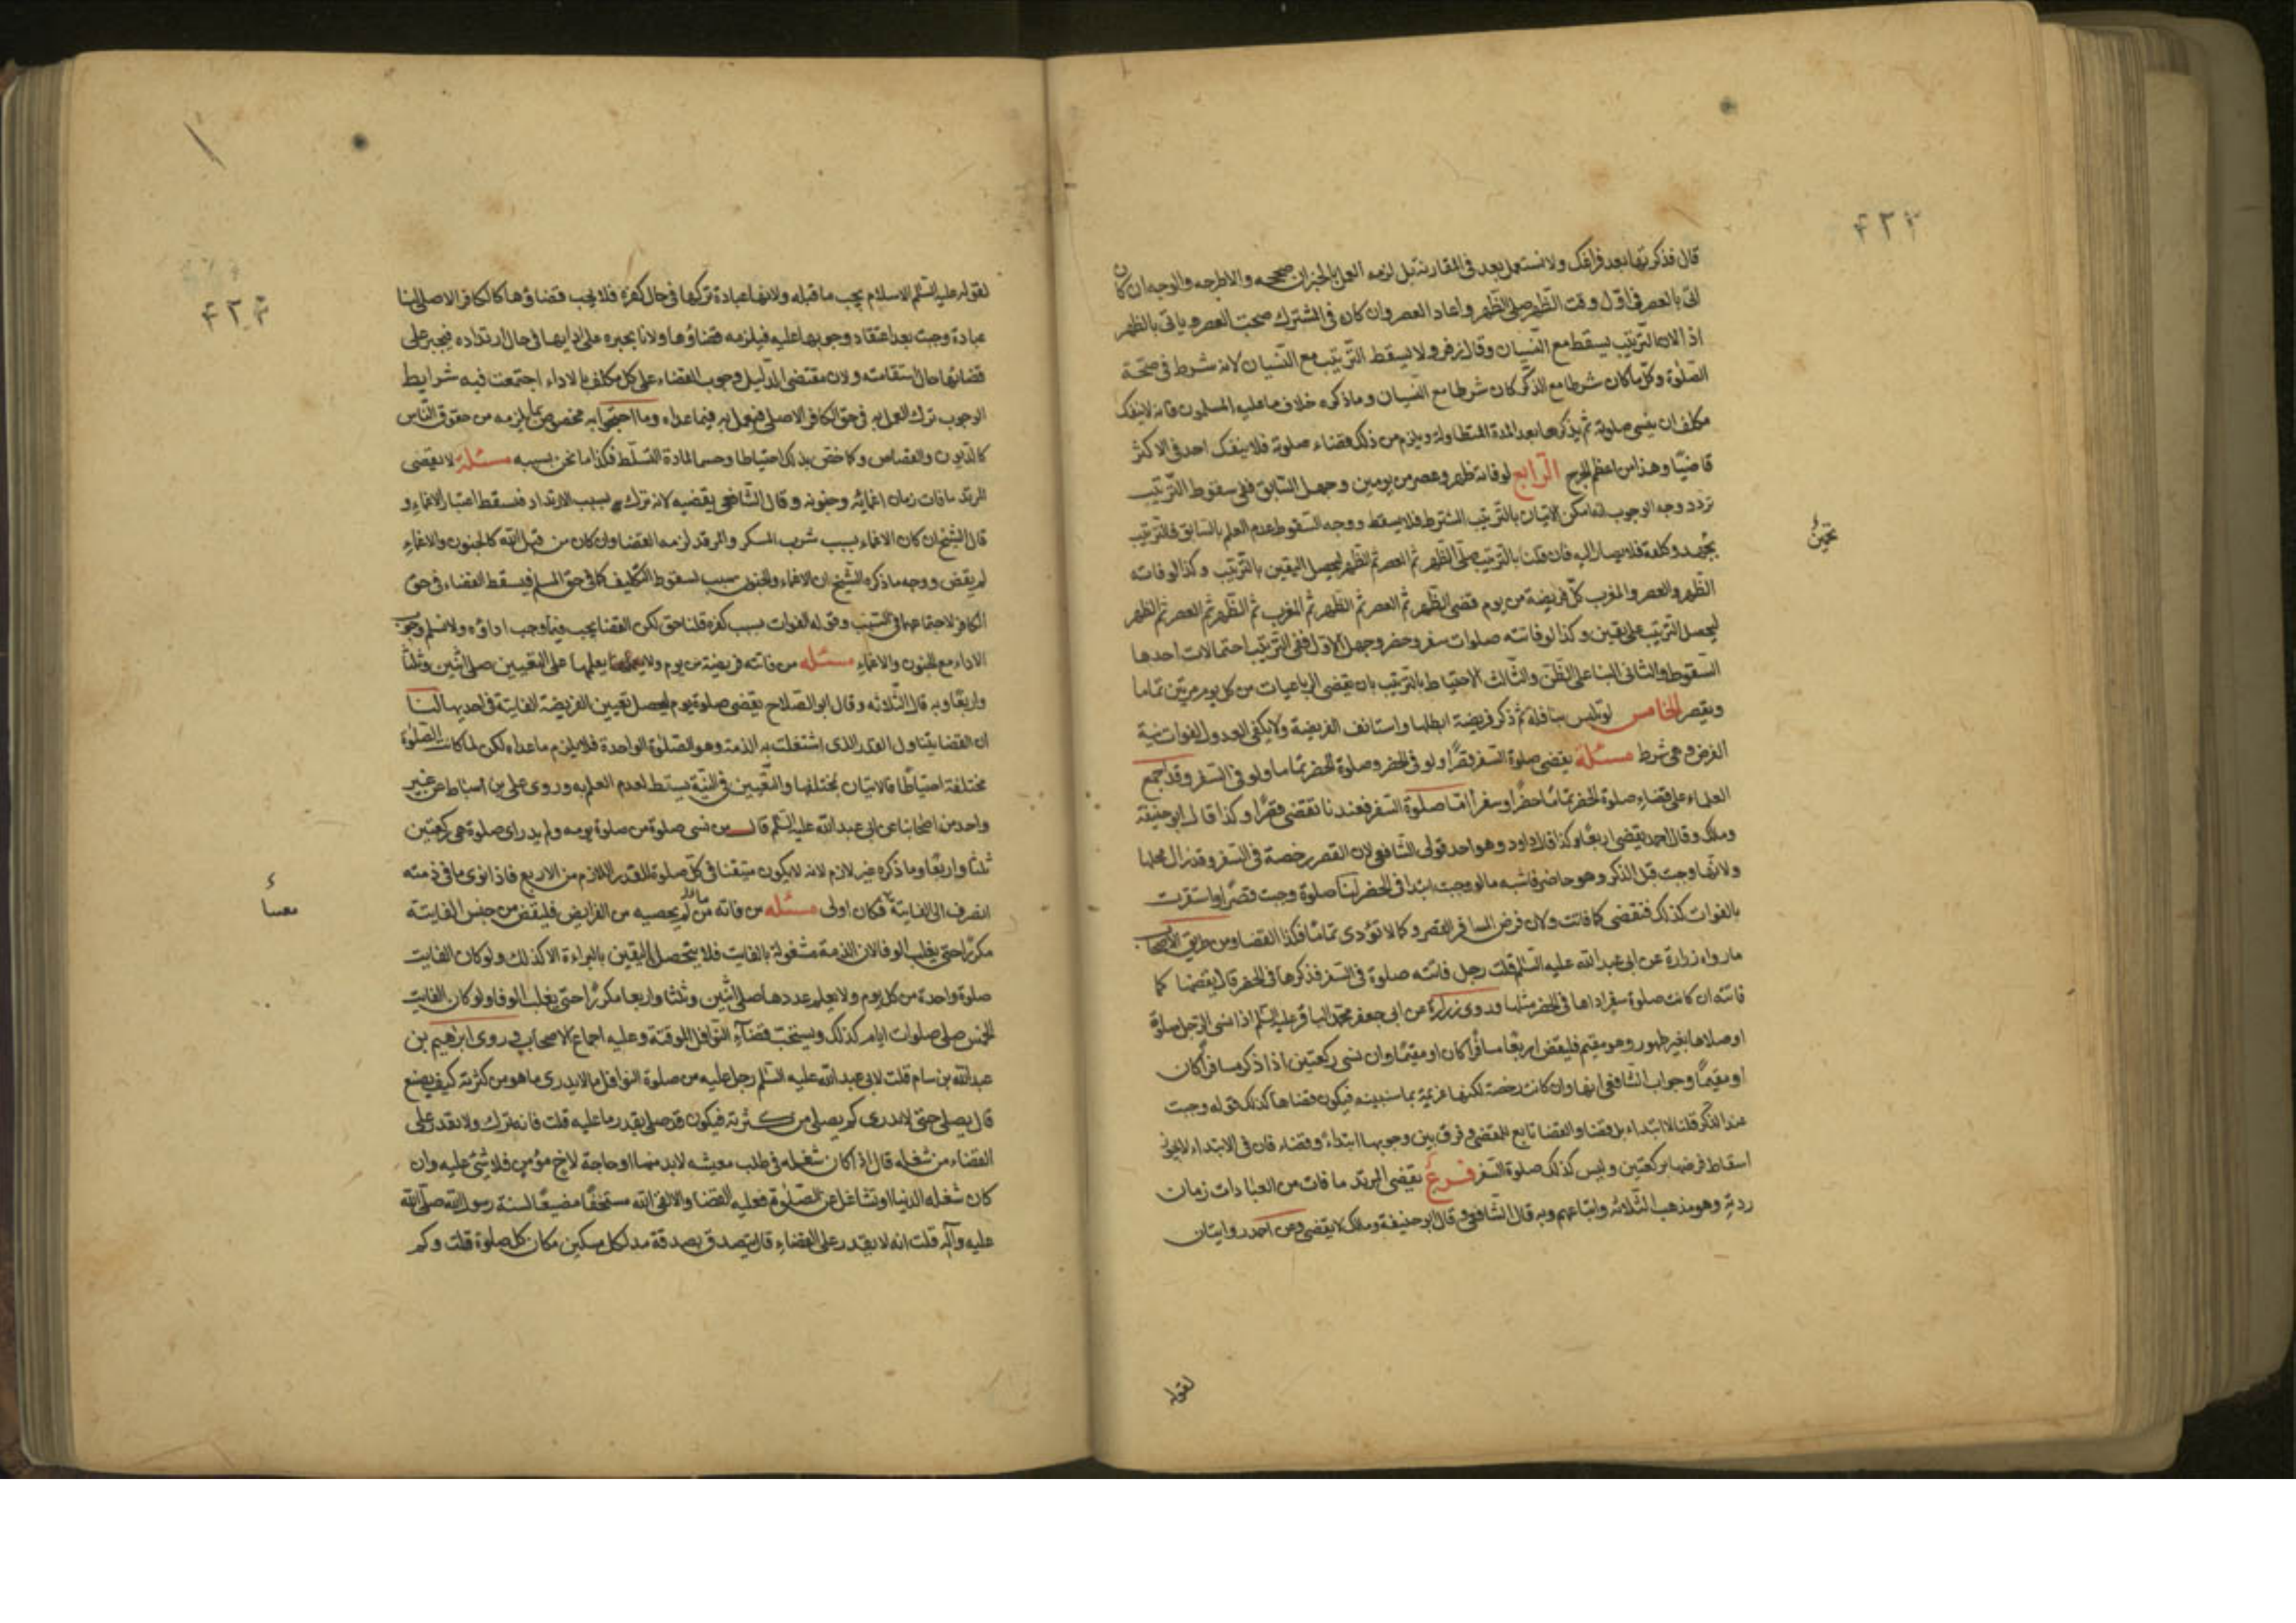 قال فذكرتها بعد فراغك ولا نستعمل بعد في المقارنة بل لزمه العمل بالخبران صححه والاطرحه والوجه ان كان
اتى بالعصر في اول وقت الظهر صلى الظهر واعاد العصر وان كان في المشترك صحت العصر وياتى بالظهر
اذ الان الترتيب يسقط مع النسيان وقال زفر ولا يسقط الترتيب مع النسيان لانه شرط في صحة
الصلوة وكل ما كان شرطا مع الذكر كان شرطا مع النسيان وما ذكره خلاف ما عليه المسلمون فانه لا ينفك
مكلف ان ينسى صلوة ثم يذكرها بعد المدة المتطاولة ويلزم من ذلك قضاء صلوة فلا ينفك احد في الاكثر
قاضيا وهذا من اعظم الحرج الرابع لو فاته ظهر وعصر من يومين وجهل السابق ففى سقوط الترتيب
تردد وجه الوجوب انه امكن الاتيان بالترتيب المشترط فلا يسقط ووجه السقوط عدم العلم بالسابق فالترتيب
وكلفة فلا يصار اليه فان قلنا بالترتيب صلى الظهر ثم العصر ثم الظهر ليحصل اليقين بالترتيب وكذا لو فاته
الظهر والعصر والمغرب كل فريضة من يوم قضى الظهر ثم العصر ثم الظهر ثم المغرب ثم الظهر ثم العصر ثم الظهر
ليحصل الترتيب على يقين وكذا لو فاتته صلوات سفر وحضر وجهل الاول ففى الترتيب احتمالات احدها
السقوط والثانى البنا على الظن والثالث الاحتياط بالترتيب بان يقضى الرباعيات من كل يوم مرتين تماما
وبقصر الخامس لو تلبس بنافلة ثم ذكر فريضة ابطلها واستانف الفريضة ولا يكفى العدول لفوات نية
الفرض وهى شرط مسئلة يقضى صلوة السفر قصرا ولو في الحضر وصلوة الحضر تماما ولو في السفر وقد اجمع
العلماء على قضاء صلوة الحضر تماما حضرا وسفرا اما صلوة السفر فعندنا تقضى قصرا وكذا قال ابو حنيفة
وملك وقال احمد يقضى اربعا وكذا قال داود وهو احد قولى الشافعى لان القصر رخصة في السفر وقد زال محلها
ولانها وجبت قبل الذكر وهو حاضر فاشبه ما لو وجبت ابتدا في الحضر لنا صلوة وجبت قصرا واستقرت
بالفوات كذلك فتقضى كما فاتت ولان فرض المسافر القصر وكما لا تؤدى تماما فكذا القضا ومن طريق الاصحاب
ما رواه زرارة عن ابى عبد الله عليه السلم قلت رجل فاتته صلوة في السفر فذكرها في الحضر قال يقضها كما
فاتته ان كانت صلوة سفر اداها في الحضر مثلها وروى زرارة عن ابى جعفر محمد الباقر عليه السلم اذا نسى الرجل صلوة
او صلاها بغير طهور وهو مقيم فليقض اربعا مسافرا كان او مقيما وان نسى ركعتين اذا ذكر مسافرا كان
او مقيما وجواب الشافعى انها وان كانت رخصة لكنها عزيمة بما سنبينه فيكون قضاها كذلك قوله وجبت
عند الذكر قلنا لا ابتداء بل قضاء والقضا تابع للمقضى وفرق بين وجوبها ابتداء وقضاء فان في الابتداء لا يجزى
اسقاط فرضها بركعتين وليس كذلك صلوة السفر فرع يقضى المرتد ما فات من العبادات زمان
ردته وهو مذهب الثلاثه واتباعهم وبه قال الشافعى وقال ابو حنيفة وملك لا يقضى وعن احمد روايتان
لقوله
لقوله عليه السلم الاسلام يجب ما قبله ولانها عبادة تركها في حال كفره فلا يجب قضاؤها كالكافر الاصلى لنا
عبادة وجبت بعد اعتقاد وجوبها عليه فيلزمه قضاؤها ولانا نجبره على ادايها في حال ارتداده فيجبر على
قضائها حال استقامته ولان مقتضى الدليل وجوب القضاء على كل مكلف بالاداء اجتمعت فيه شرايط
الوجوب ترك العمل به في حق الكافر الاصلى فيعمل به فيما عداه وما احتجوا به مخصوص بما يلزمه من حقوق الناس
كالديون والقصاص وكما خص بذلك احتياطا وحسما لمادة التسلط فكذا ما نحن بسببه مسئلة لا يقضى
المرتد ما فات زمان اغمائه وجنونه وقال الشافعى يقضيه لانه ترك بسبب الارتداد فسقط اعتبار الاغماء و
قال الشيخ ان كان الاغماء بسبب شرب المسكر والمرقد لزمه القضا وان كان من قبل الله كالجنون والاغماء
لم يقض ووجه ما ذكره الشيخ ان الاغماء والجنون سبب لسقوط التكليف كما في حق المسلم فيسقط القضاء في حق
الكافر لاجتماعهما في السبب وقوله الفوات بسبب كفره قلنا حق لكن القضا يجب فيما وجب اداؤه ولا نسلم وجوب
الاداء مع الجنون والاغماء مسئله من فاتته فريضة من يوم ولا يعلمها على التعيين صلى اثنين وثلثا
واربعا وبه قال الثلاثه وقال ابو الصلاح يقضى صلوة يوم ليحصل تعيين الفريضة الفايتة في احديها لنا
ان القضا يتناول القدر الذى اشتغلت به الذمة وهو الصلوة الواحدة فلا يلزم ما عداه لكن لما كانت الصلوة
مختلفة احتياطا فالاتيان بمختلفها والتعيين في النية يسقط لعدم العلم به وروى على بن اسباط عن غير
واحد من اصحابنا عن ابى عبد الله عليه السلم قال من نسى صلوة من صلوة يومه ولم يدر اى صلوة هى ركعتين
ثلثا واربعا وما ذكره غير لازم لانه لا يكون متيقنا في كل صلوة للقدر اللازم من الاربع فاذا نوى ما في ذمته
انصرف الى الفايتة فكان اولى مسئله من فاته ما لم يحصيه من الفرايض فليقض من جنس الفايتة
مكررا حتى يغلب الوفا لان الذمة مشغولة بالفايت فلا يتحصل اليقين بالبراءة الا كذلك ولو كان الفايت
صلوة واحدة من كل يوم ولا يعلم عددها صلى اثنين وثلثا واربعا مكررا حتى يغلب الوفا ولو كان الفايت
الخمس صلى صلوات ايام كذلك ويستحب قضاء النوافل الموقتة وعليه اجماع الاصحاب روى ابرهيم بن
عبد الله بن سام قلت لابى عبد الله عليه السلم رجل عليه من صلوة النوافل ما لا يدرى ما هو من كثرته كيف يصنع
قال يصلى حتى لا يدرى كم يصلى من كثرته فيكون قد صلى بقدر ما عليه قلت فانه ترك ولا يقدر على
القضاء من شغله قال اذا كان شغله في طلب معيشة لا بد منها او حاجة لاخ مؤمن فلا شئ عليه وان
كان شغله الدنيا وتشاغل عن الصلوة فعليه القضا والا لقى الله مستخفا مضيعا لسنة رسول الله صلى الله
عليه وآله قلت انه لا يقدر على القضاء قال يتصدق بصدقة مد لكل مسكين مكان كل صلوة قلت وكم